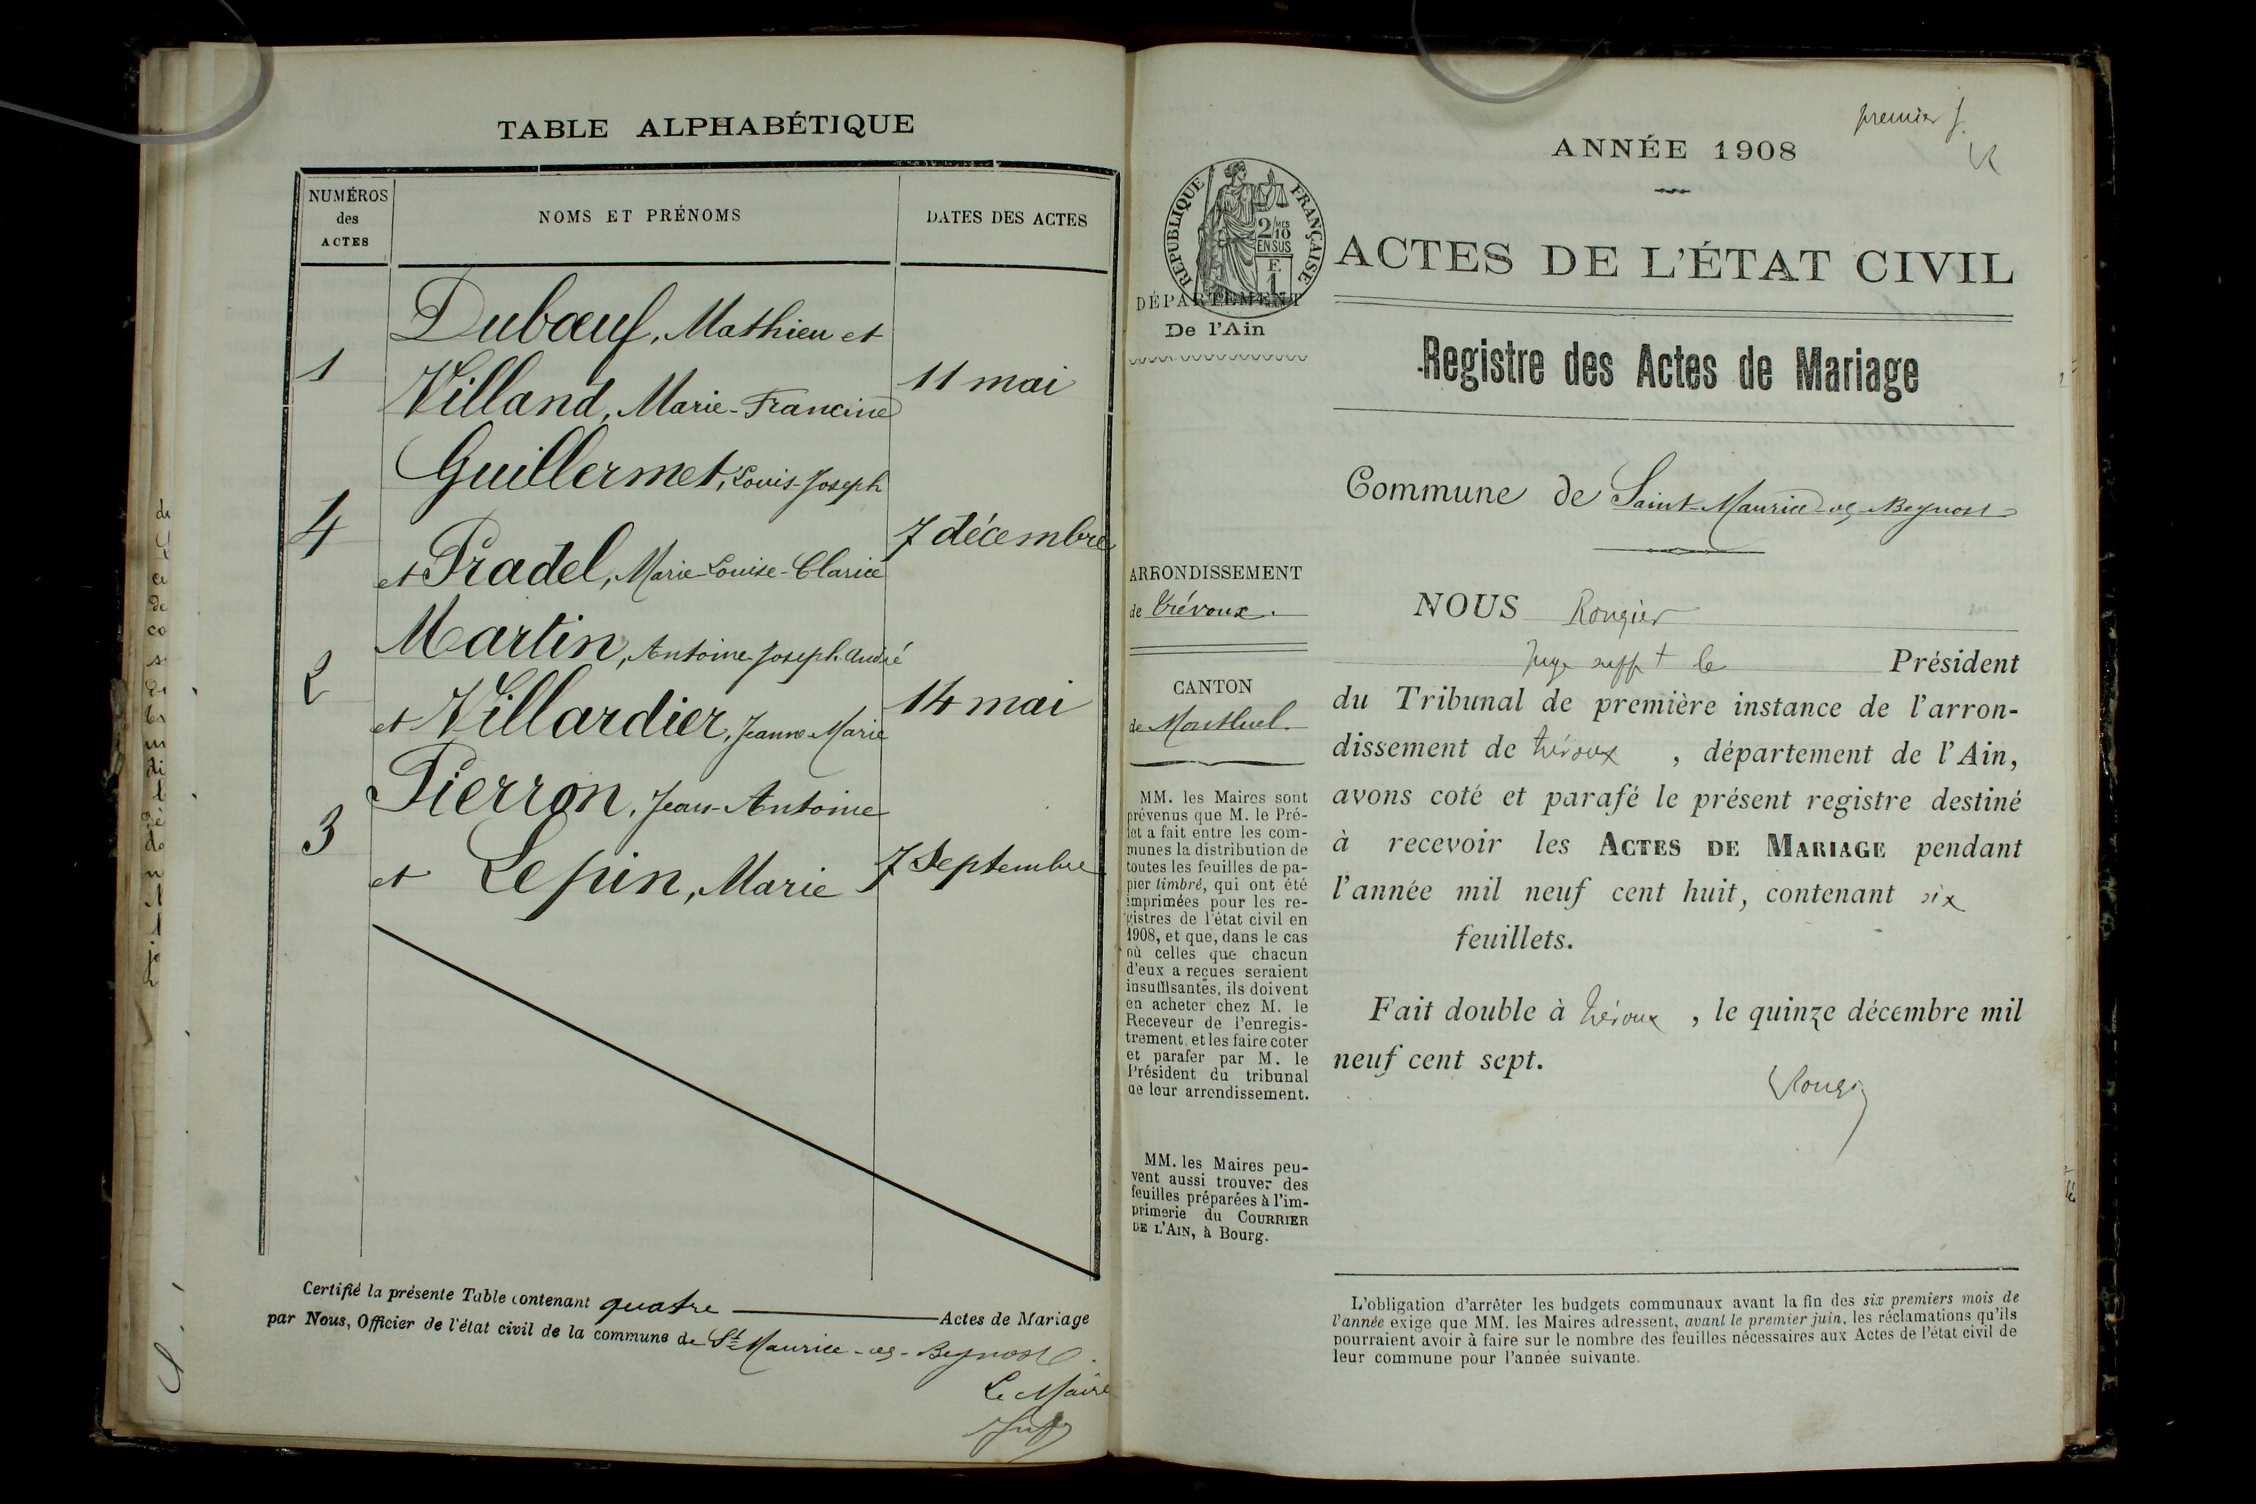 TABLE ALPHABÉTIQUE
NUMÉROS
des
ACTES
NOMS ET PRÉNOMS
DATES DES ACTES
Dubœuf, Mathieu et
1
11 mai
Villand, Marie-Francine
Guillermet, Louis-Joseph
4
7 décembre
et Pradel, Marie-Louise-Clarice
Martin, Antoine-Joseph-André
2
14 mai
et Villardier, Jeanne-Marie
Pierron, Jean-Antoine
3
7 Septembre
et Lepin, Marie
Certifié la présente Table contenant quatre Actes de Mariage
par Nous, Officier de l'état civil de la commune de St Maurice-de-Beynost.
Le Maire
premier f.
ANNÉE 1908
RÉPUBLIQUE FRANÇAISE
2/10 MES
EN SUS
F.
1
ACTES DE L'ÉTAT CIVIL
DÉPARTEMENT
De l'Ain
Registre des Actes de Mariage
Commune de Saint-Maurice-de-Beynost
ARRONDISSEMENT
de Trévoux.
CANTON
de Montluel.
MM. les Maires sont
prévenus que M. le Pré-
fet a fait entre les com-
munes la distribution de
toutes les feuilles de pa-
pier timbré, qui ont été
imprimées pour les re-
gistres de l'état civil en
1908, et que, dans le cas
où celles que chacun
d'eux a reçues seraient
insuffisantes, ils doivent
en acheter chez M. le
Receveur de l'enregis-
trement, et les faire coter
et parafer par M. le
Président du tribunal
de leur arrondissement.
MM. les Maires peu-
vent aussi trouver des
feuilles préparées à l'im-
primerie du COURRIER
DE L'AIN, à Bourg.
NOUS Rougier
Juge supp t le Président
du Tribunal de première instance de l'arron-
dissement de Trévoux , département de l'Ain,
avons coté et parafé le présent registre destiné
à recevoir les ACTES DE MARIAGE pendant
l'année mil neuf cent huit, contenant six
feuillets.
Fait double à Trévoux , le quinze décembre mil
neuf cent sept.
Rougier
L'obligation d'arrêter les budgets communaux avant la fin des six premiers mois de
l'année exige que MM. les Maires adressent, avant le premier juin, les réclamations qu'ils
pourraient avoir à faire sur le nombre des feuilles nécessaires aux Actes de l'état civil de
leur commune pour l'année suivante.